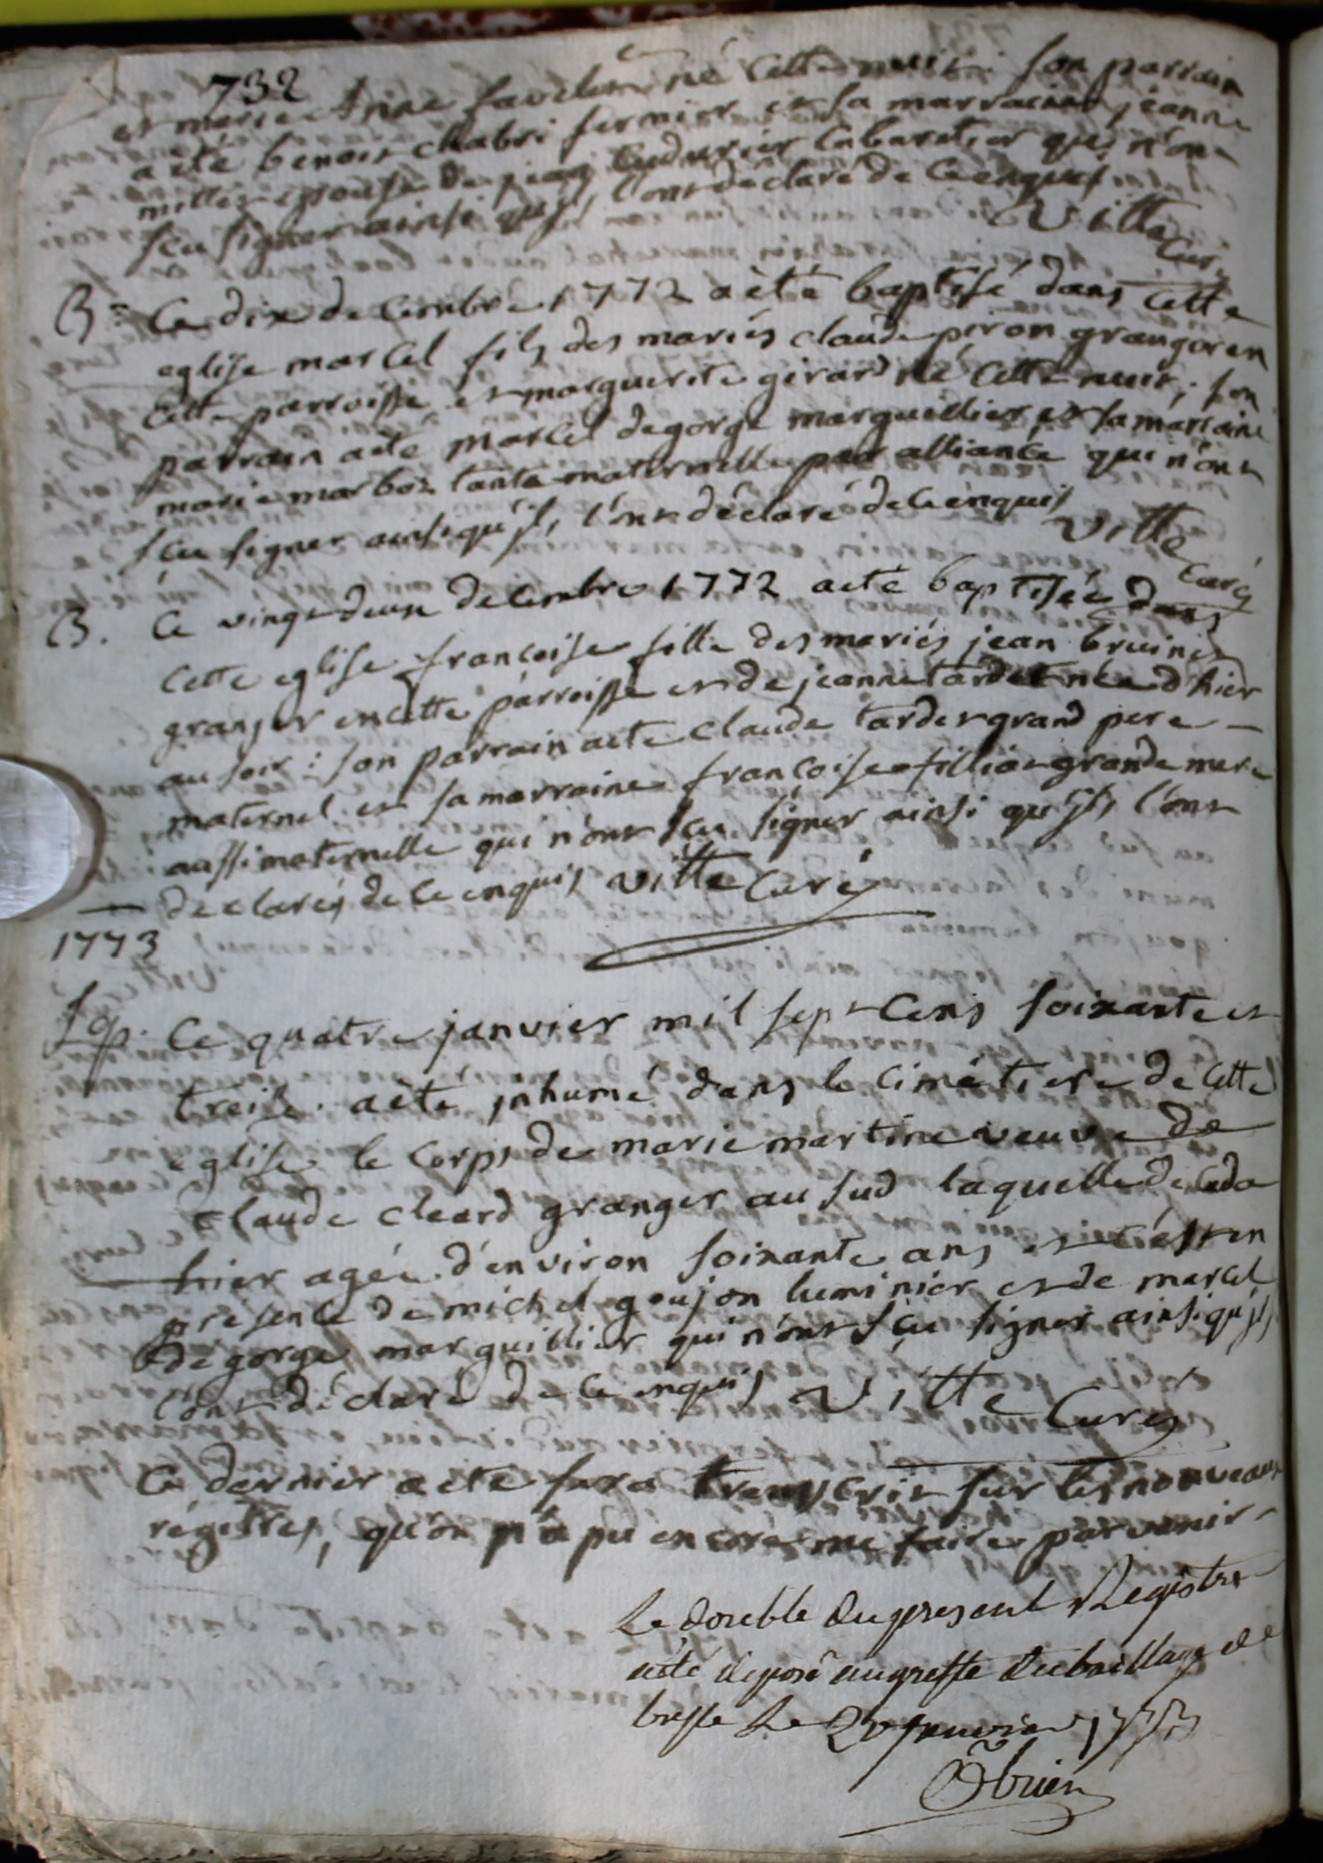 732
et marie Anne favelet né cette nuit. son parrain
a eté benoit chabri fermier et sa marraine jeanne
millet epouse de jean cabaretier qui n'ont
sçu signer ainsi qu'ils l'ont déclaré de ce enquis
Vitte
Curé
B. Ce dix decembre 1772 a été baptisé dans cette
eglise marcel fils des mariés claude peron granger en
cette parroisse et marguerite girard né cette nuit; son
parrain a eté marcel degorge marguillier et sa marraine
marie marboz tante maternelle par alliance qui n'ont
sçu signer ainsi qu'ils l'ont déclaré de ce enquis
Vitte
Curé
B. Ce vingt deux decembre 1772 a eté baptisée dans
cette eglise françoise fille des mariés jean bruine
granger en cette parroisse et de jeanne tardet née d'hier
au soir: son parrain a eté claude tardet grand pere
maternel et sa marraine françoise fillion grande mere
aussi maternelle qui n'ont sçu signer ainsi qu'ils l'ont
declarés de ce enquis Vitte Curé
1773
Sep. Ce quatre janvier mil sept cens soixante et
treise a eté inhumé dans le cimétiere de cette
eglise le corps de marie martine veuve de
claude cleard granger au sud laquelle deceda
hier agée d'environ soixante ans et c'est en
presence de michel goujon luminier et de marcel
degorge marguillier qui n'ont sçu signer ainsi qu'ils
l'ont déclaré de ce enquis Vitte Curé
Ce dernier acte sera transcrit sur les nouveaux
régistres, qu'on n'a pu encore me faire parvenir
Le double du present Registre
a eté deposé au greffe du bailliage de
bresse Le janvier 1773
Obrien